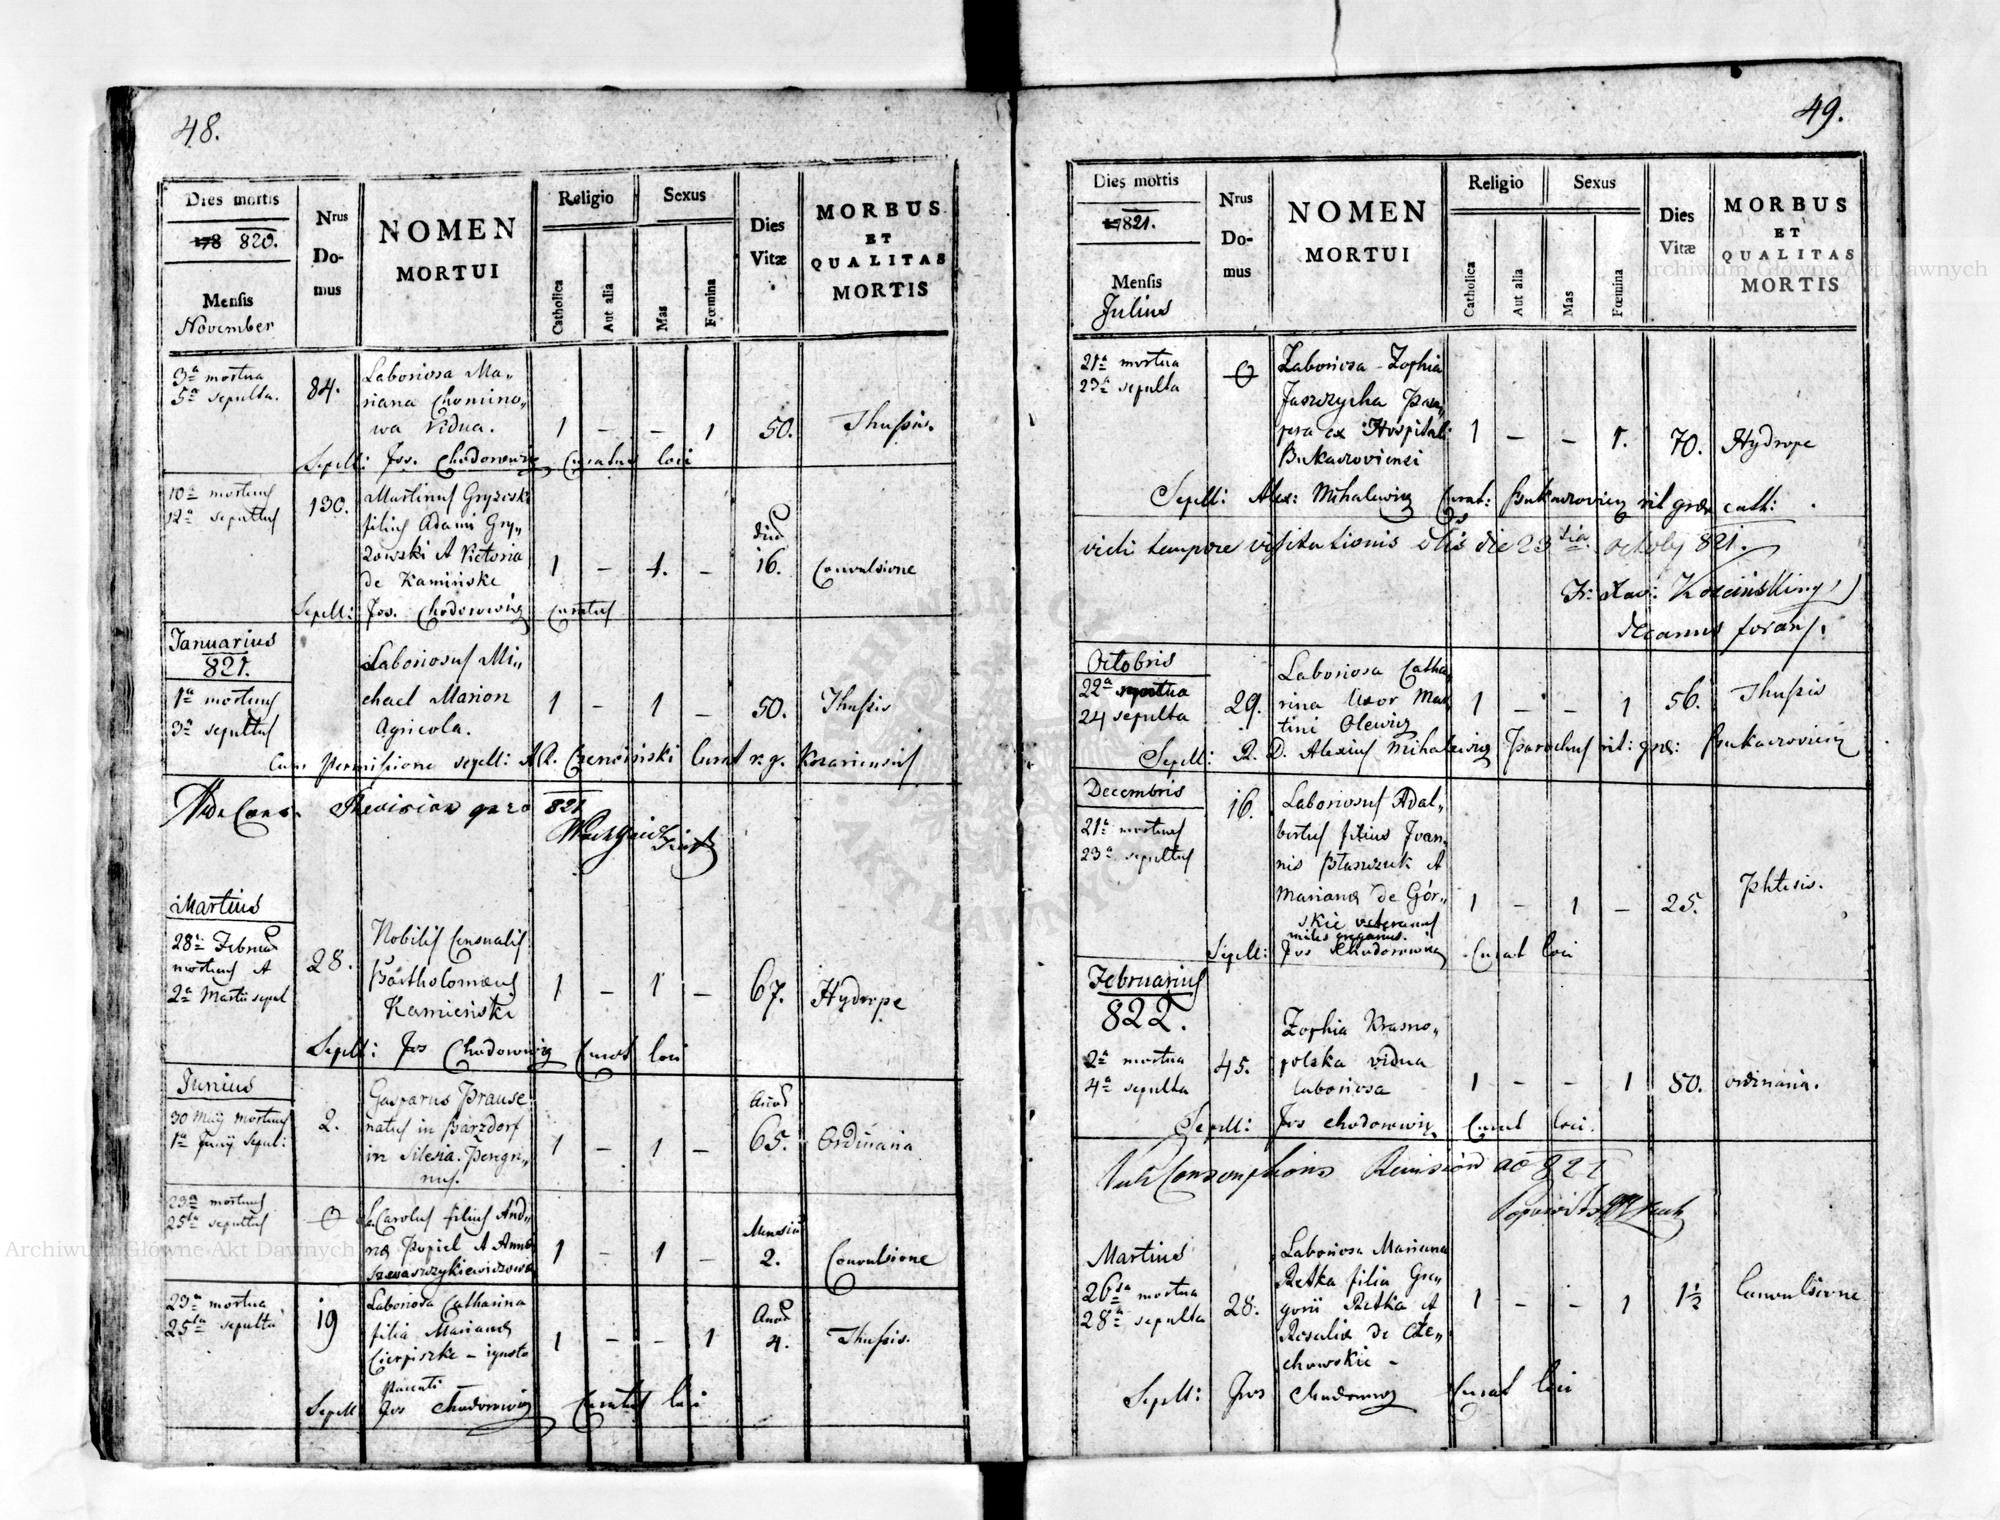 48.
Dies mortis
178 820.
Mensis
November
Nrus
Do-
mus
NOMEN
MORTUI
Religio
Catholica
Aut alia
Sexus
Mas
Fœmina
Dies
Vitæ
MORBUS
ET
QUALITAS
MORTIS
3a mortua
5a sepulta.
84.
Laboriosa Ma„
riana Chomino„
wa Vidua.
1 – – 1 50. Thussis.
Sepell: Jos. Chodorowicz Curatus loci
10a mortuus
12a sepultus
130.
Martinus Gryzowski
filius Adami Gry„
zowski et Victoria
de Kamińskie
1 – 1. – dieb 16. Convulsione
Sepell: Jos. Chodorowicz Curatus
Januarius
821.
1a mortuus
3a sepultus
Laboriosus Mi„
chael Marion
Agricola.
1 – 1 – 50. Thussis
Cum Permissione sepell: A.R. Czerwiński Curat r. g. Knariensis
Revision pro 821
Martius
28a Februar
mortuus et
2a Martii sepul
28.
Nobilis Censualis
Bartholomæus
Kamieński
1 – 1 – 67. Hydrope
Sepell: Jos Chodorowicz Curat loci
Junius
30 Maij mortuus
1a Junij Sepul:
2.
Gasparus Prause
natus in Barzdorf
in Silesia. Peregri„
nus.
1 – 1 – Anno 65. Ordinaria
23a mortuus
25ta sepultus
0
Carolus filius And„
Popiel et Anna
1 – 1 – Mensium 2. Convulsione
23a mortua
25ta sepulta
19
Laboriosa Catharina
filia Mariana
Cierpiszka – ignoto
Parenti
1 – – 1 Anno 4. Thussis.
Sepell Jos Chodorowicz Curatus loci
49.
Dies mortis
17821.
Mensis
Julius
Nrus
Do-
mus
NOMEN
MORTUI
Religio
Catholica
Aut alia
Sexus
Mas
Fœmina
Dies
Vitæ
MORBUS
ET
QUALITAS
MORTIS
21a mortua
23a sepulta
0
Laboriosa – Zophia
Jaszczycha Pau„
pera ex Hospitali
Bukaczoviensi
1 – – 1. 70. Hydrope
Sepell: Alex: Mihalewicz Curat: Bukaczoviens rit græc cath:
vidi tempore visitationis die 23tia octobr 821.
Fr: Xav:
decanus foran.
Octobris
22a mortua
24 sepulta
29.
Laboriosa Catha„
rina Uxor Mar„
tini Olewicz
1 – – 1 56. Thussis
Sepell: R. D. Alexius Mihalewicz Parochus rit: græ: Bukaczoviens
Decembris
21a mortuus
23a sepultus
16.
Laboriosus Adal„
bertus filius Joan„
nis Błaszczuk et
Mariana de Gór„
skie veteranus
miles gregarius.
1 – 1 – 25. Phtisis.
Sepell: Jos Chodorowicz Curat loci
Februarius
822.
2a mortua
4a sepulta
45.
Zophia Krasno„
polska vidua
laboriosa
1 – – 1 80. ordinaria.
Sepell: Jos Chodorowicz Curat loci.
Conscriptions Revision 821
Martius
26ta mortua
28a sepulta
28.
Laboriosa Mariana
Retka filia Gre„
gorii Retka et
Rosalia de Cze„
chowskie –
1 – – 1 1½ Convulsione
Sepell: Jos Chodorowicz Curat loci
Archiwum Główne Akt Dawnych
Archiwum Główne Akt Dawnych